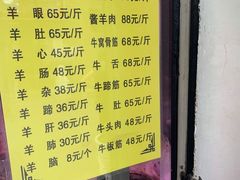 羊 眼 65元/斤 酱羊肉 88元/斤
羊 肚 65元/斤 牛窝骨筋 68元/斤
羊 心 45元/斤 牛 舌 68元/斤
羊 肠 48元/斤 牛蹄筋 65元/斤
羊 杂 38元/斤 牛 肚 65元/斤
羊 蹄 36元/斤 牛头肉 48元/斤
羊 肝 36元/斤 牛板筋 48元/斤
羊 肺 30元/斤
羊 脑 8元/个